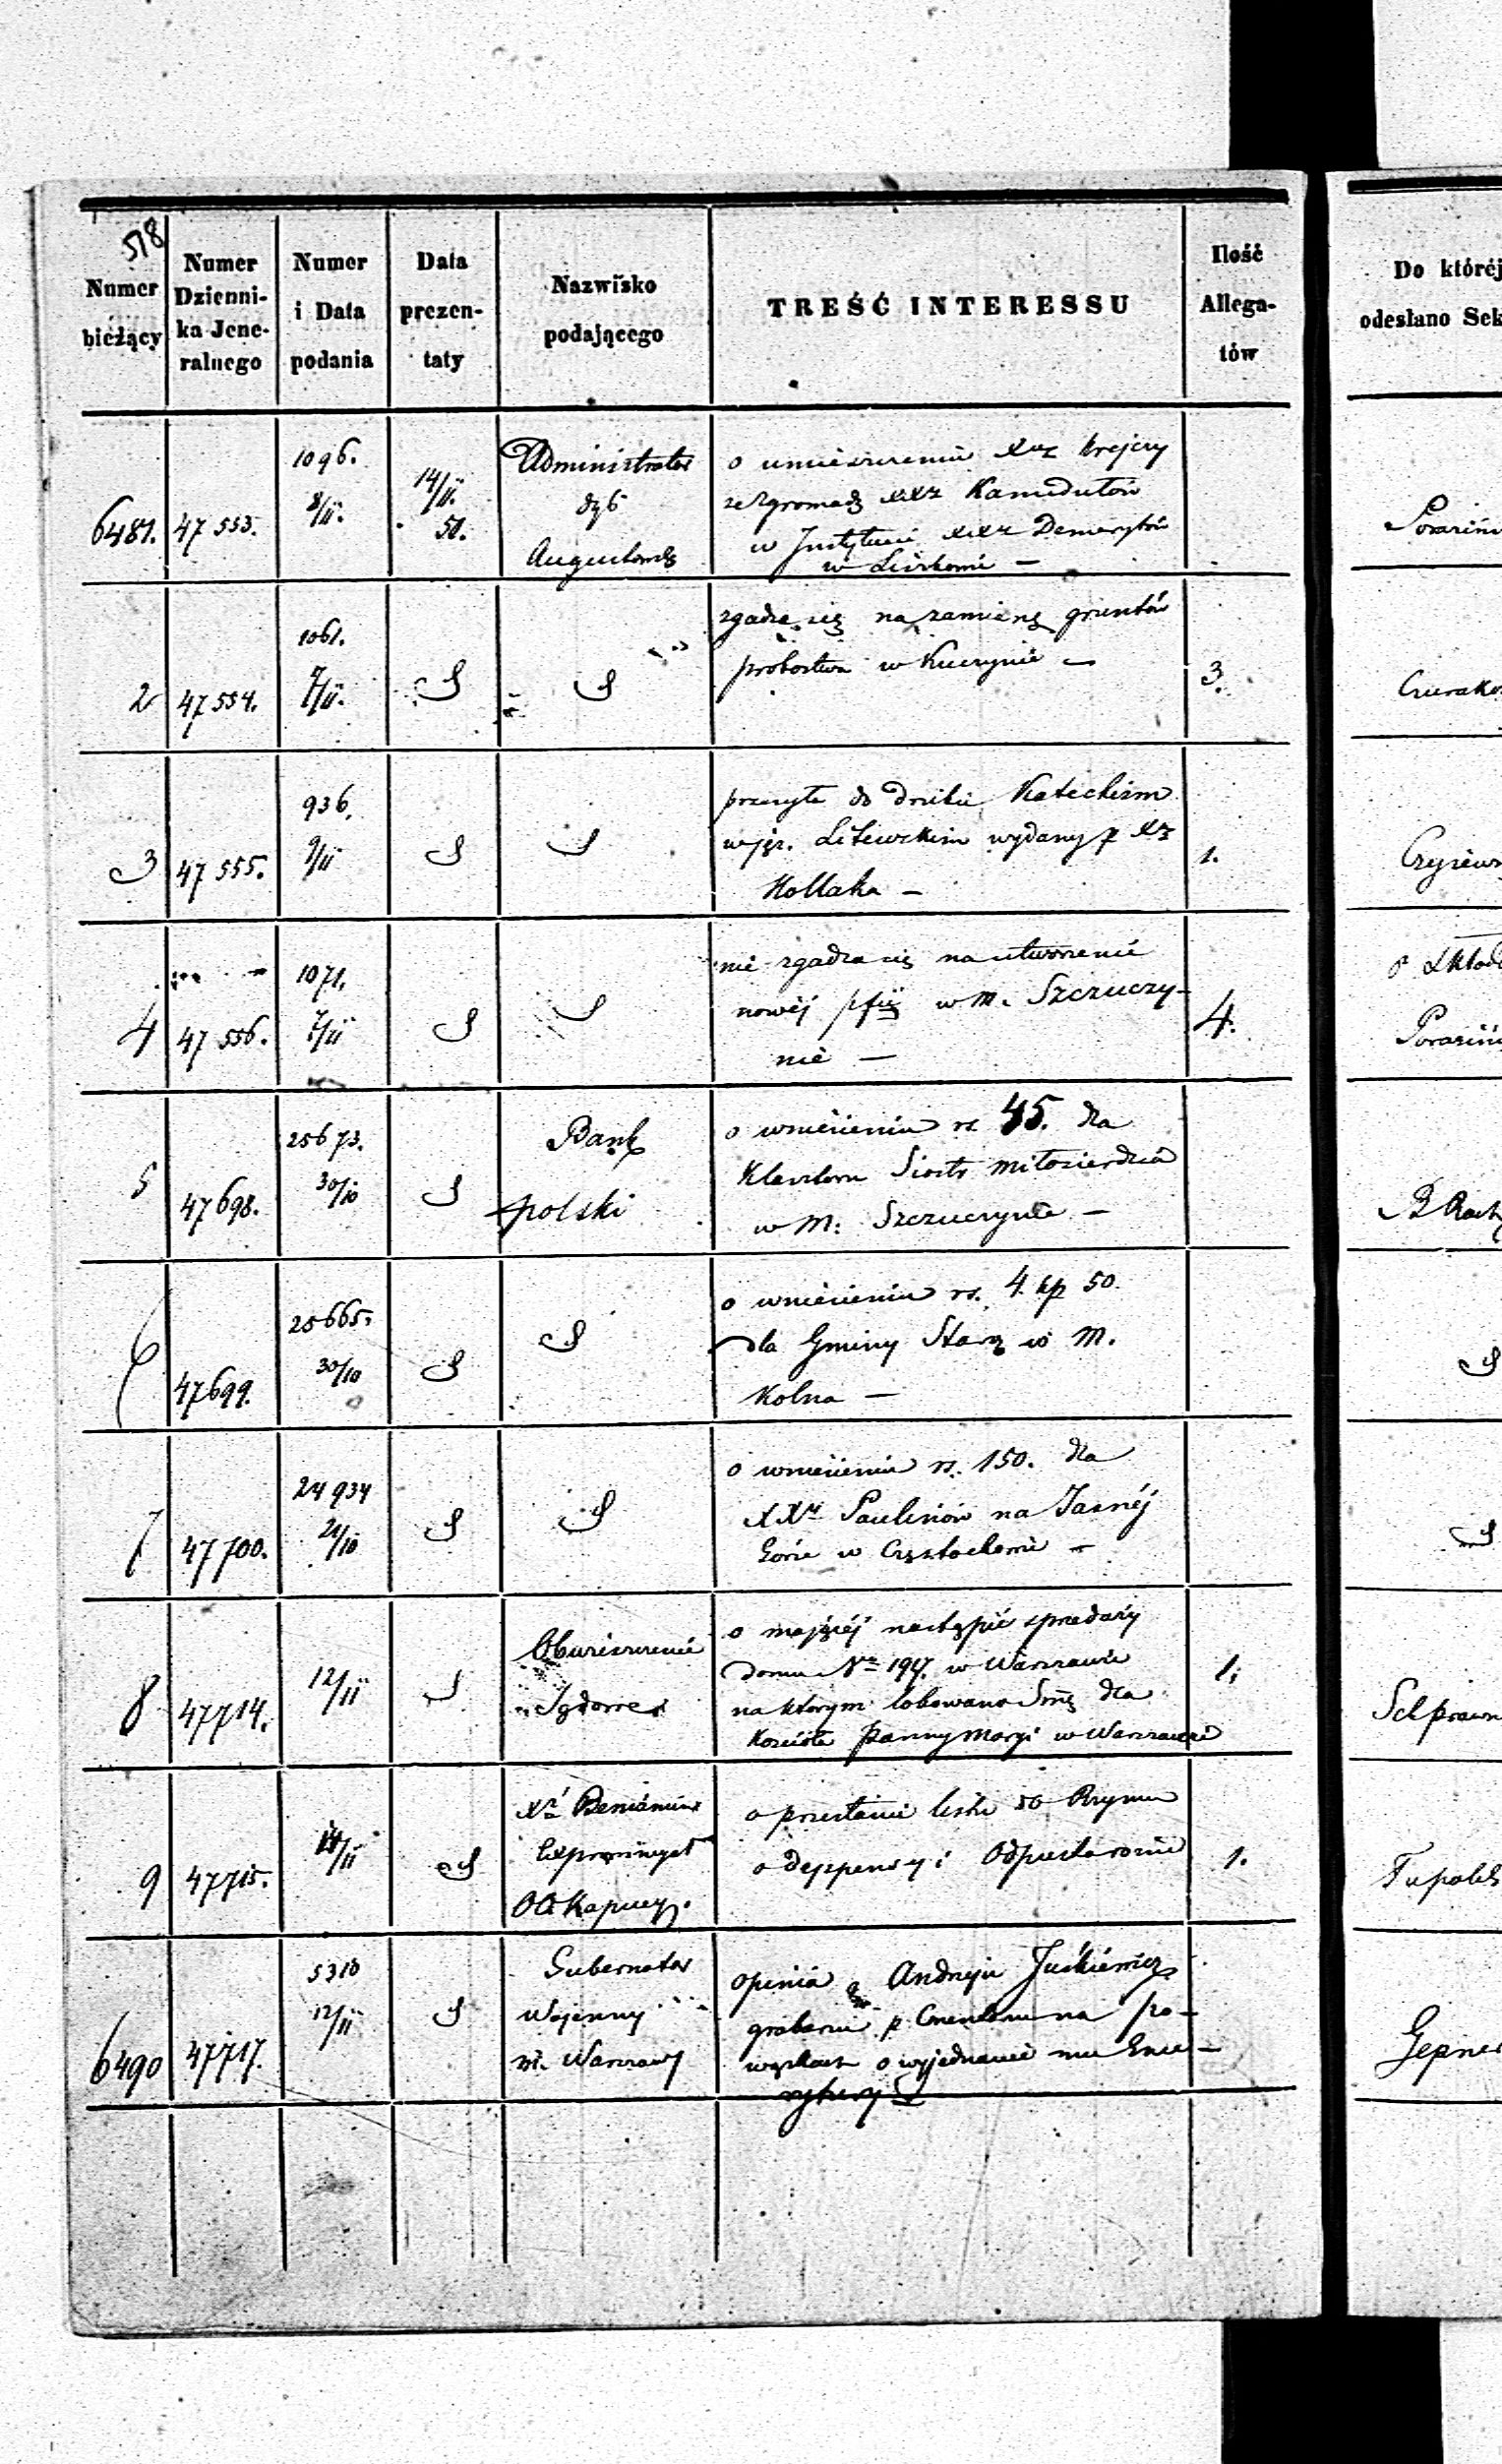 518
Numer
bieżący
Numer
Dzienni-
ka Jene-
ralnego
Numer
i Data
podania
Data
prezen-
taty
Nazwisko
podającego
TREŚĆ INTERESSU
Ilość
Allega-
tów
Do któréj
odesłano Sek
6481.
47 553.
1096.
8/11.
14/11.
50.
Administrator
Augustows
o umieszczenie Xdz Krejczy
ze Zgromadz XXz Kamedułów
w Instytucie XXz Demerytów
w
2
47 554.
1061.
7/11.
zgadza się na zamianę gruntów
probostwa w Kuczynie —
3.
3
47 555.
936.
9/11
przesyła do druku Katechizm
w jęz. Litewskim wydany p Xz
Kollaka —
1.
4
47 556.
1071.
7/11
nie zgadza się na utworzenie
nowéj pfii w M. Szczuczy-
nie —
4.
5
47698.
25673.
30/10
Bank
polski
o wniesieniu rs. 45. dla
Klasztoru Siostr miłosierdzia
w M. Szczuczynie —
6
47699.
25665.
30/10
o wniesieniu rs. 4. kp 50.
dla Gminy Starz w M.
Kolna —
7
47700.
24934
21/10
o wniesieniu rs. 150. dla
XXw Paulinów na Jasnéj
Górze w Częstochowie —
8
47714.
12/11
Obwieszczenie
o mającéj nastąpić sprzedaży
domu Nr 197. w Warszawie
na którym lokowano Smę dla
Kościoła Panny Maryi w Warszawie
1.
9
47715.
14/11
Xdz Beniamin
Exprowincyał
OO. Kapucy.
o przesłanie listu do Rzymu
o dyspensy i Odpust
1.
6490
47717.
5310
12/11
Gubernator
Wojenny
m. Warszawy
opinia o Andrzeju Juśkiewicz
grabarzu p Cmentarzu na Po-
wązkach o wyjednanie mu Eme-
rytury